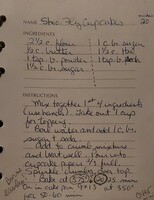 NAME: Shoo Fly Cupcakes
20
INGREDIENTS
2½ c. flour
1 c. br. sugar
½ c. butter
1 tsp. b. powder
1 tsp. b. soda
1½ c. br. sugar
INSTRUCTIONS
Mix together 1st 4 ingredients
(use hands). Take out 1 cup
for topping.
Boil water and add 1 c. br.
sugar & soda
Add to crumb mixture
and beat well. Pour into
cupcake papers ⅔ full.
Sprinkle crumbs on top
Bake at
Or in cake pan 9x13 at 350°
for 50-60 min